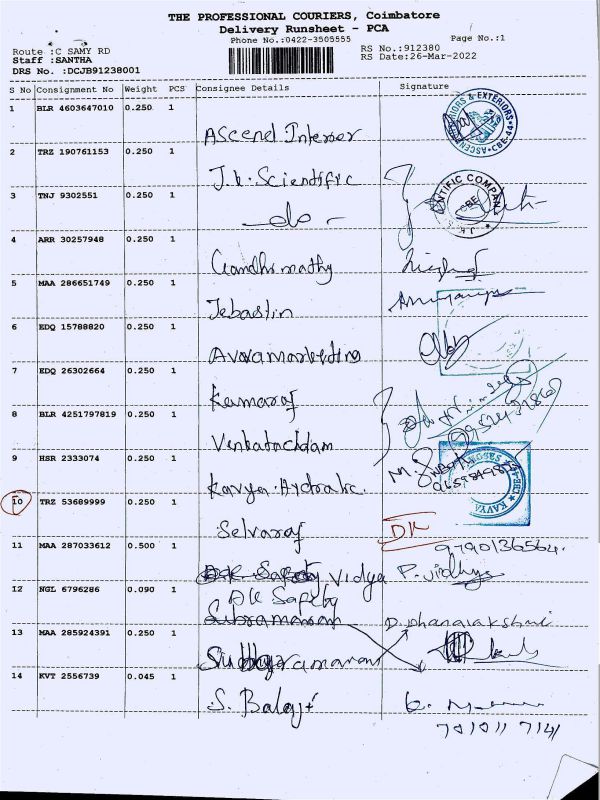 THE PROFESSIONAL COURIERS, Coimbatore
Delivery Runsheet - PCA
Phone No.:0422-3505555
Page No.:1
Route :C SAMY RD
RS No.:912380
Staff :SANTHA
RS Date:26-Mar-2022
DRS No. :DCJB91238001
S No Consignment No Weight PCS Consignee Details Signature
1 BLR 4603647010 0.250 1
Ascend Interior
2 TRZ 190761153 0.250 1
J.k. Scientific
3 TNJ 9302551 0.250 1
- do -
4 ARR 30257948 0.250 1
Gandhimathy
5 MAA 286651749 0.250 1
Jebastin
6 EDQ 15788820 0.250 1
7 EDQ 26302664 0.250 1
Kamaraj
8 BLR 4251797819 0.250 1
Venkatachalam
9 HSR 2333074 0.250 1
Kavya
10 TRZ 53689999 0.250 1
Selvaraj DK
11 MAA 287033612 0.500 1
9790136564.
Vidya P. Vidhya
12 NGL 6796286 0.090 1
DK Safety
Subramanan D. Dhanalakshmi
13 MAA 285924391 0.250 1
14 KVT 2556739 0.045 1
S. Balaji